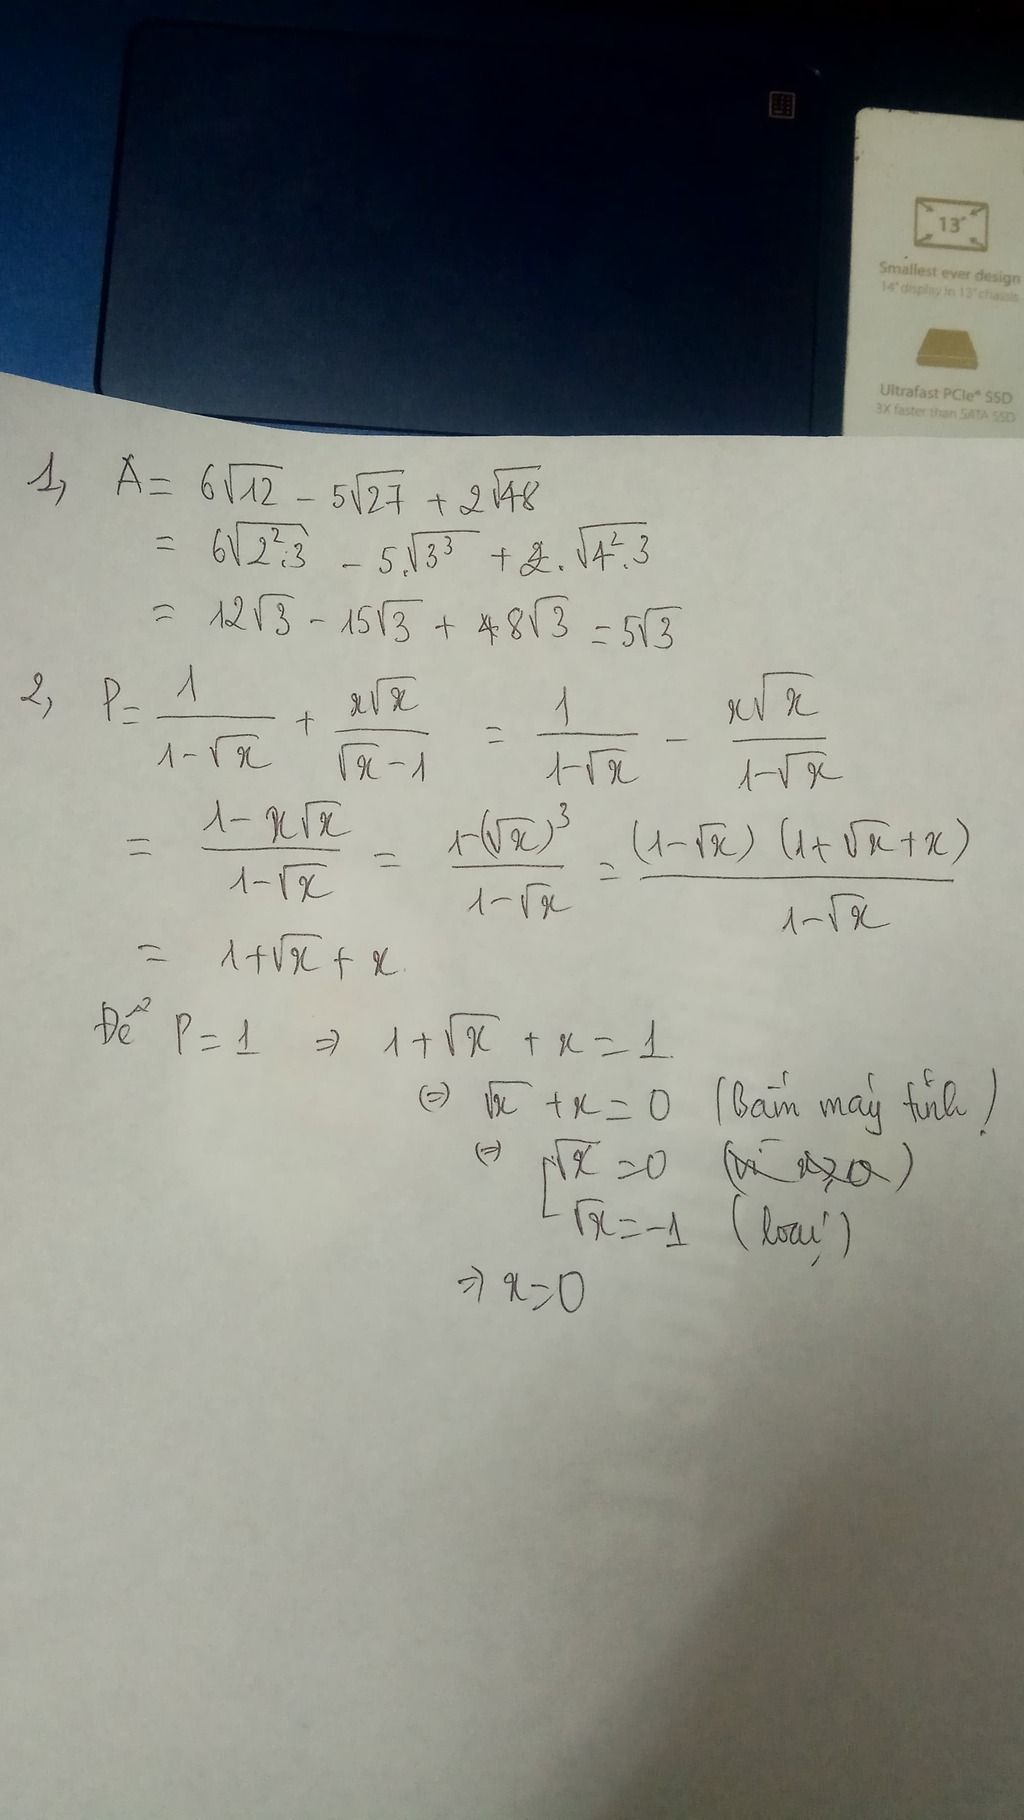 13"
Smallest ever design
14" display in 13" chassis
Ultrafast PCIe® SSD
3X faster than SATA SSD
1, A = 6√12 - 5√27 + 2√48
= 6√2².3 - 5.√3³ + 2.√4².3
= 12√3 - 15√3 + 8√3 = 5√3
2, P = 1/(1-√x) + x√x/(√x-1) = 1/(1-√x) - x√x/(1-√x)
= (1-x√x)/(1-√x) = (1-(√x)³)/(1-√x) = (1-√x)(1+√x+x)/(1-√x)
= 1+√x+x.
Để P=1 ⇒ 1+√x+x=1.
(=) √x+x=0 (Bấm máy tính!)
(=) [√x=0
√x=-1 (loại)
⇒ x=0